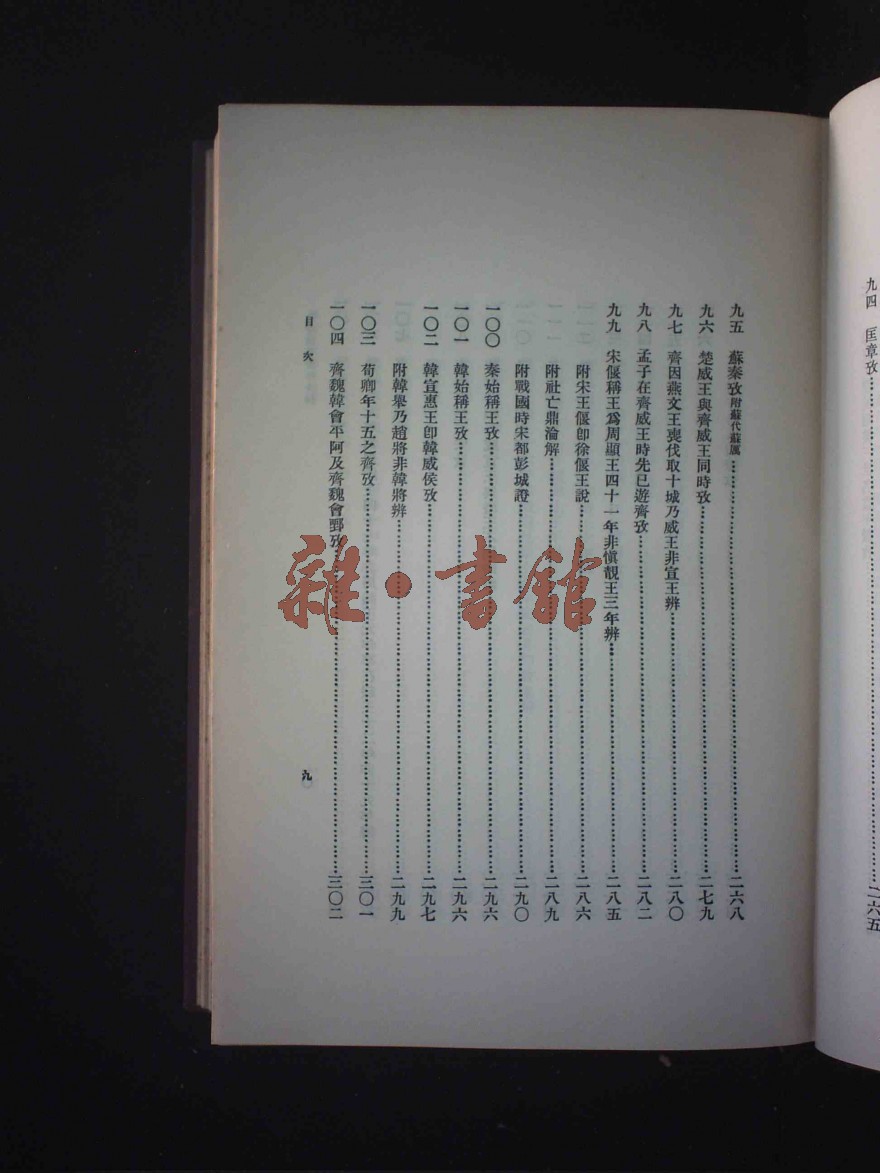 九四　匡章攷……二六五
九五　蘇秦攷附蘇代蘇厲……二六八
九六　楚威王與齊威王同時攷……二七九
九七　齊因燕文王喪伐取十城乃威王非宣王辨……二八〇
九八　孟子在齊威王時先已遊齊攷……二八二
九九　宋偃稱王爲周顯王四十一年非愼靚王三年辨……二八五
附宋王偃卽徐偃王說……二八六
附社亡鼎淪解……二八九
附戰國時宋都彭城證……二九〇
一〇〇　秦始稱王攷……二九六
一〇一　韓始稱王攷……二九六
一〇二　韓宣惠王卽韓威侯攷……二九七
附韓舉乃趙將非韓將辨……二九九
一〇三　荀卿年十五之齊攷……三〇一
一〇四　齊魏韓會平阿及齊魏會甄攷……三〇二
目次
九
雜·書館